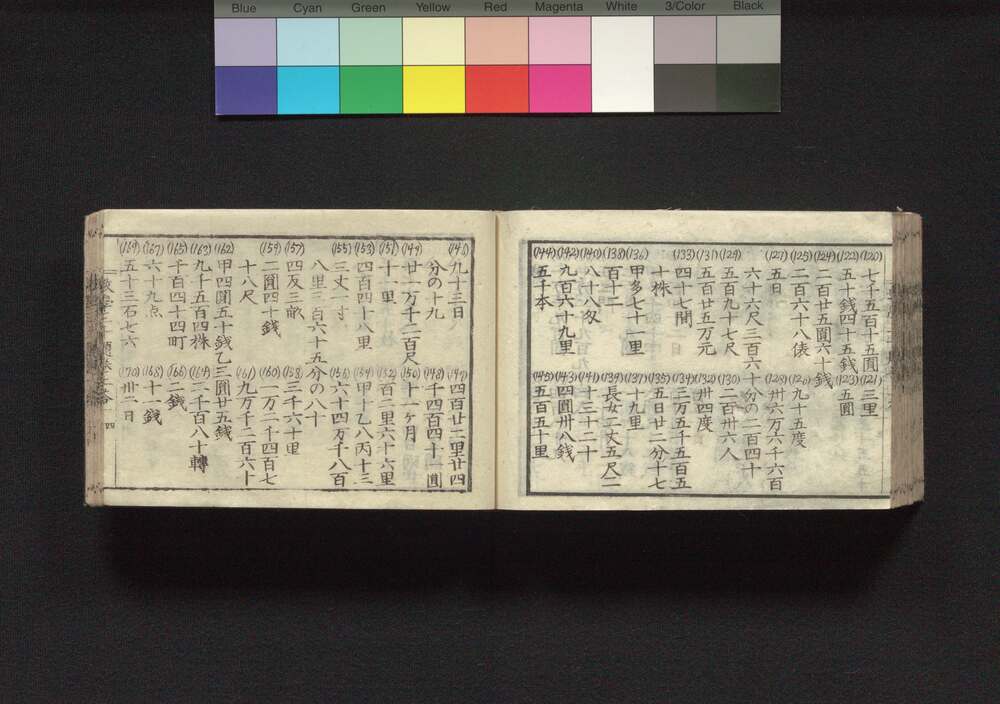 Blue Cyan Green Yellow Red Magenta White 3/Color Black
(120) 七千五百十五圓 (121) 三里
(122) 五十錢四十五錢 (123) 五圓
(124) 二百廿五圓六十錢
(125) 二百六十八俵 (126) 九十五度
(127) 五日 (128) 卅六万六千六百
六十六尺三百六十分の二百四十
(129) 五百九十七尺 (130) 二百卅六人
(131) 五百廿五万元 (132) 卅四度
(133) 四十七間 (134) 三万五千五百五
十株 (135) 五日廿二分十七
(136) 甲多七十一里 (137) 十九里
(138) 百十二 (139) 長女二丈五尺二
(140) 八十八匁 (141) 十三十二十
(142) 九百六十九里 (143) 四圓卅八錢
(144) 五千本 (145) 五百五十里
(146) 九十三日 (147) 四百廿二里廿四
分の十九 (148) 千四百四十一圓
(149) 廿一万千二百尺 (150) 十一ヶ月
(151) 十一里 (152) 百二里六十六里
(153) 四百四十八里 (154) 甲十乙八丙十三
(155) 三丈一寸 (156) 六十四万千八百
八里三百六十五分の八十
(157) 四反三畝 (158) 三千六十里
(159) 二圓四十錢 (160) 一万二千四百七
十八尺 (161) 九万千二百六十
(162) 甲四圓五十錢乙三圓廿五錢
(163) 九千五百四株 (164) 二千百八十轉
(165) 千百四十四町 (166) 二錢
(167) 六十九点 (168) 十一錢
(169) 五十三石七六 (170) 卅二日